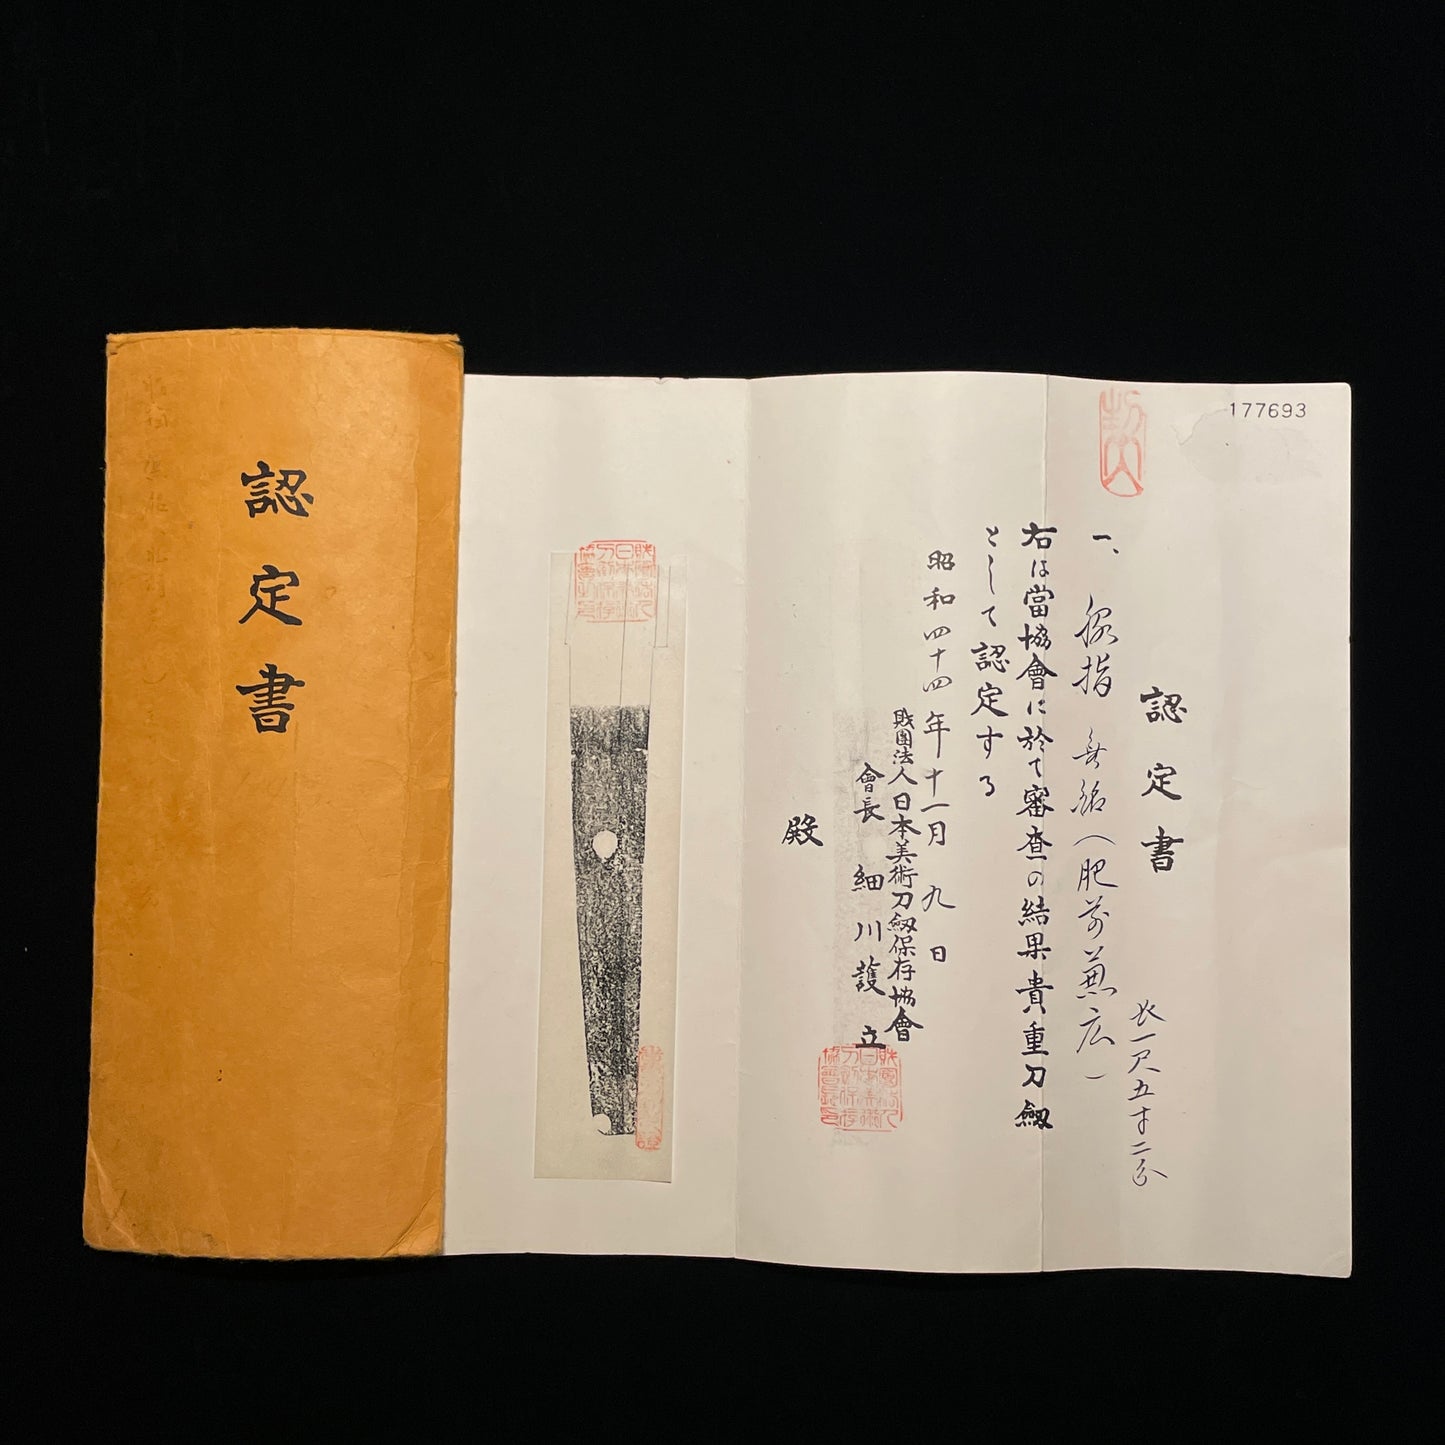 177693
認定書
一、脇指 無銘(肥前兼広)
長一尺五寸二分
右は當協會に於て審査の結果貴重刀劔
として認定する
昭和四十四年十一月九日
財團法人日本美術刀劔保存協會
會長 細川護立
殿
認定書